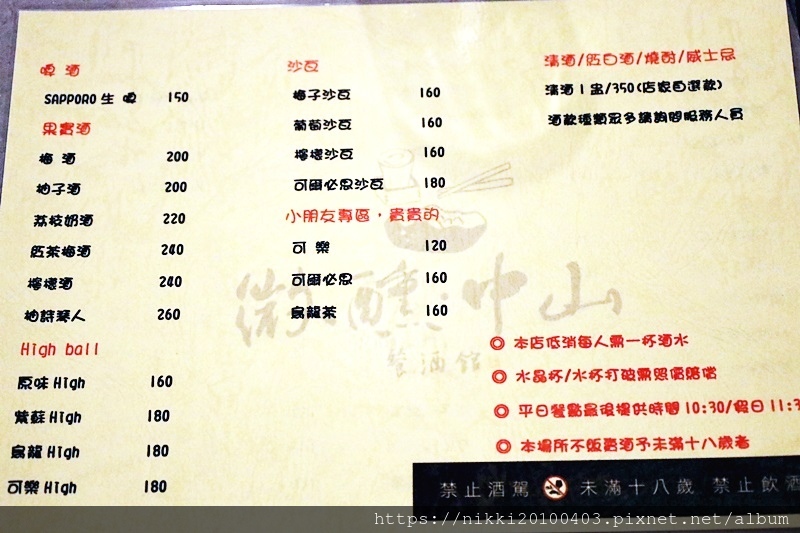 啤 酒
SAPPORO 生 啤 150
果實酒
梅 酒 200
柚子酒 200
荔枝奶酒 220
紅茶梅酒 240
檸檬酒 240
柚詩琴人 260
High ball
原味 High 160
紫蘇 High 180
烏龍 High 180
可樂 High 180
沙瓦
梅子沙瓦 160
葡萄沙瓦 160
檸檬沙瓦 160
可爾必思沙瓦 180
小朋友專區，貴貴的
可 樂 120
可爾必思 160
烏龍茶 160
清酒/紅白酒/燒酎/威士忌
清酒 1 盅/350(店家自選款)
酒款種類眾多請詢問服務人員
微醺中山
餐酒館
◎ 本店低消每人需一杯酒水
◎ 水晶杯/水杯打破需照價賠償
◎ 平日餐點最後提供時間 10:30/假日 11:3
◎ 本場所不販賣酒予未滿十八歲者
禁止酒駕 未滿十八歲 禁止飲酒
https://nikki20100403.pixnet.net/album